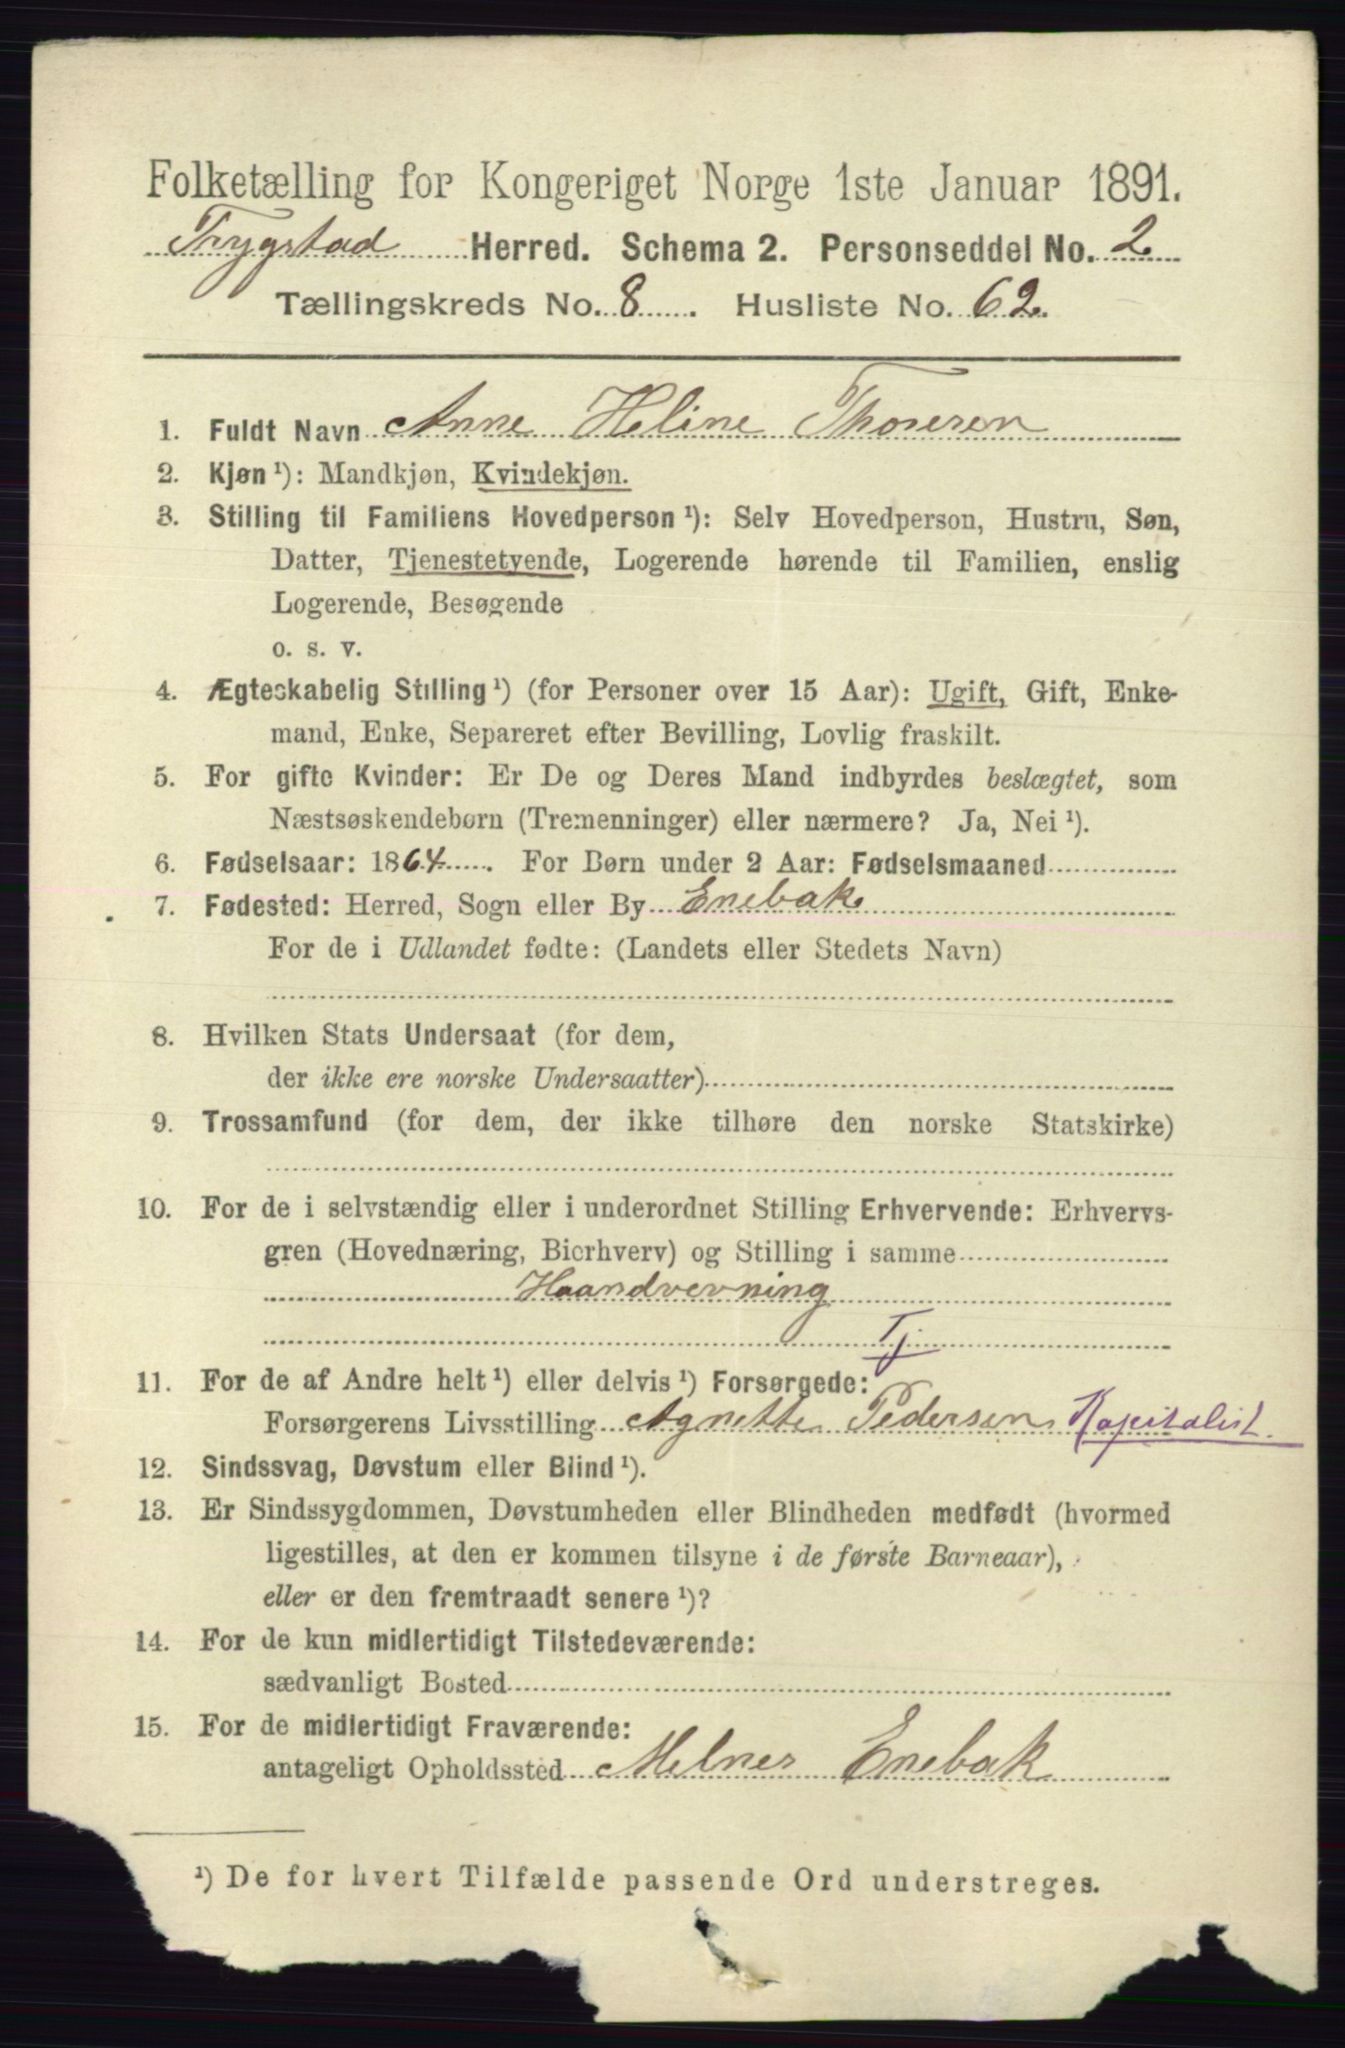 Folketælling for Kongeriget Norge 1ste Januar 1891.
Trygstad Herred. Schema 2. Personseddel No. 2
Tællingskreds No. 8. Husliste No. 62.
1. Fuldt Navn Anne Heline Thoresen
2. Kjøn ¹): Mandkjøn, Kvindekjøn.
3. Stilling til Familiens Hovedperson ¹): Selv Hovedperson, Hustru, Søn,
Datter, Tjenestetyende, Logerende hørende til Familien, enslig
Logerende, Besøgende
o. s. v.
4. Ægteskabelig Stilling ¹) (for Personer over 15 Aar): Ugift, Gift, Enke-
mand, Enke, Separeret efter Bevilling, Lovlig fraskilt.
5. For gifte Kvinder: Er De og Deres Mand indbyrdes beslægtet, som
Næstsøskendebørn (Tremenninger) eller nærmere? Ja, Nei ¹).
6. Fødselsaar: 1864. For Børn under 2 Aar: Fødselsmaaned
7. Fødested: Herred, Sogn eller By Enebak
For de i Udlandet fødte: (Landets eller Stedets Navn)
8. Hvilken Stats Undersaat (for dem,
der ikke ere norske Undersaatter)
9. Trossamfund (for dem, der ikke tilhøre den norske Statskirke)
10. For de i selvstændig eller i underordnet Stilling Erhvervende: Erhvervs-
gren (Hovednæring, Bierhverv) og Stilling i samme
Haandvevning
Tj.
11. For de af Andre helt ¹) eller delvis ¹) Forsørgede:
Forsørgerens Livsstilling Agnette Pedersen Kapitalist.
12. Sindssvag, Døvstum eller Blind ¹).
13. Er Sindssygdommen, Døvstumheden eller Blindheden medfødt (hvormed
ligestilles, at den er kommen tilsyne i de første Barneaar),
eller er den fremtraadt senere ¹)?
14. For de kun midlertidigt Tilstedeværende:
sædvanligt Bosted
15. For de midlertidigt Fraværende:
antageligt Opholdssted Melnes Enebak
¹) De for hvert Tilfælde passende Ord understreges.